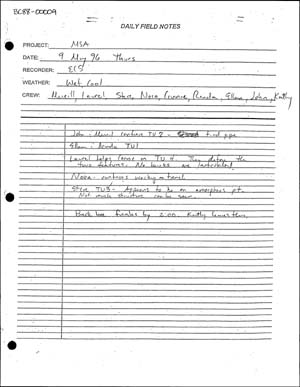 BC88-00009
DAILY FIELD NOTES
PROJECT: MSA
DATE: 9 May 96 Thurs
RECORDER: ECS
WEATHER: Wet, Cool
CREW: Merrill, Laurel, Steve, Nora, Connie, Ronda, Ellen, John, Kathy
John + Merrill continue TU 2 - find pipe
Ellen + Ronda TU1
Laurel helps Connie on TU 4. They define the
two features. No bones are
Nora - continues
Steve TU3 - Appears to be an amorphous pit.
Not much structure can be seen.
Back hoe finishes by 2:00. Kathy leaves then.